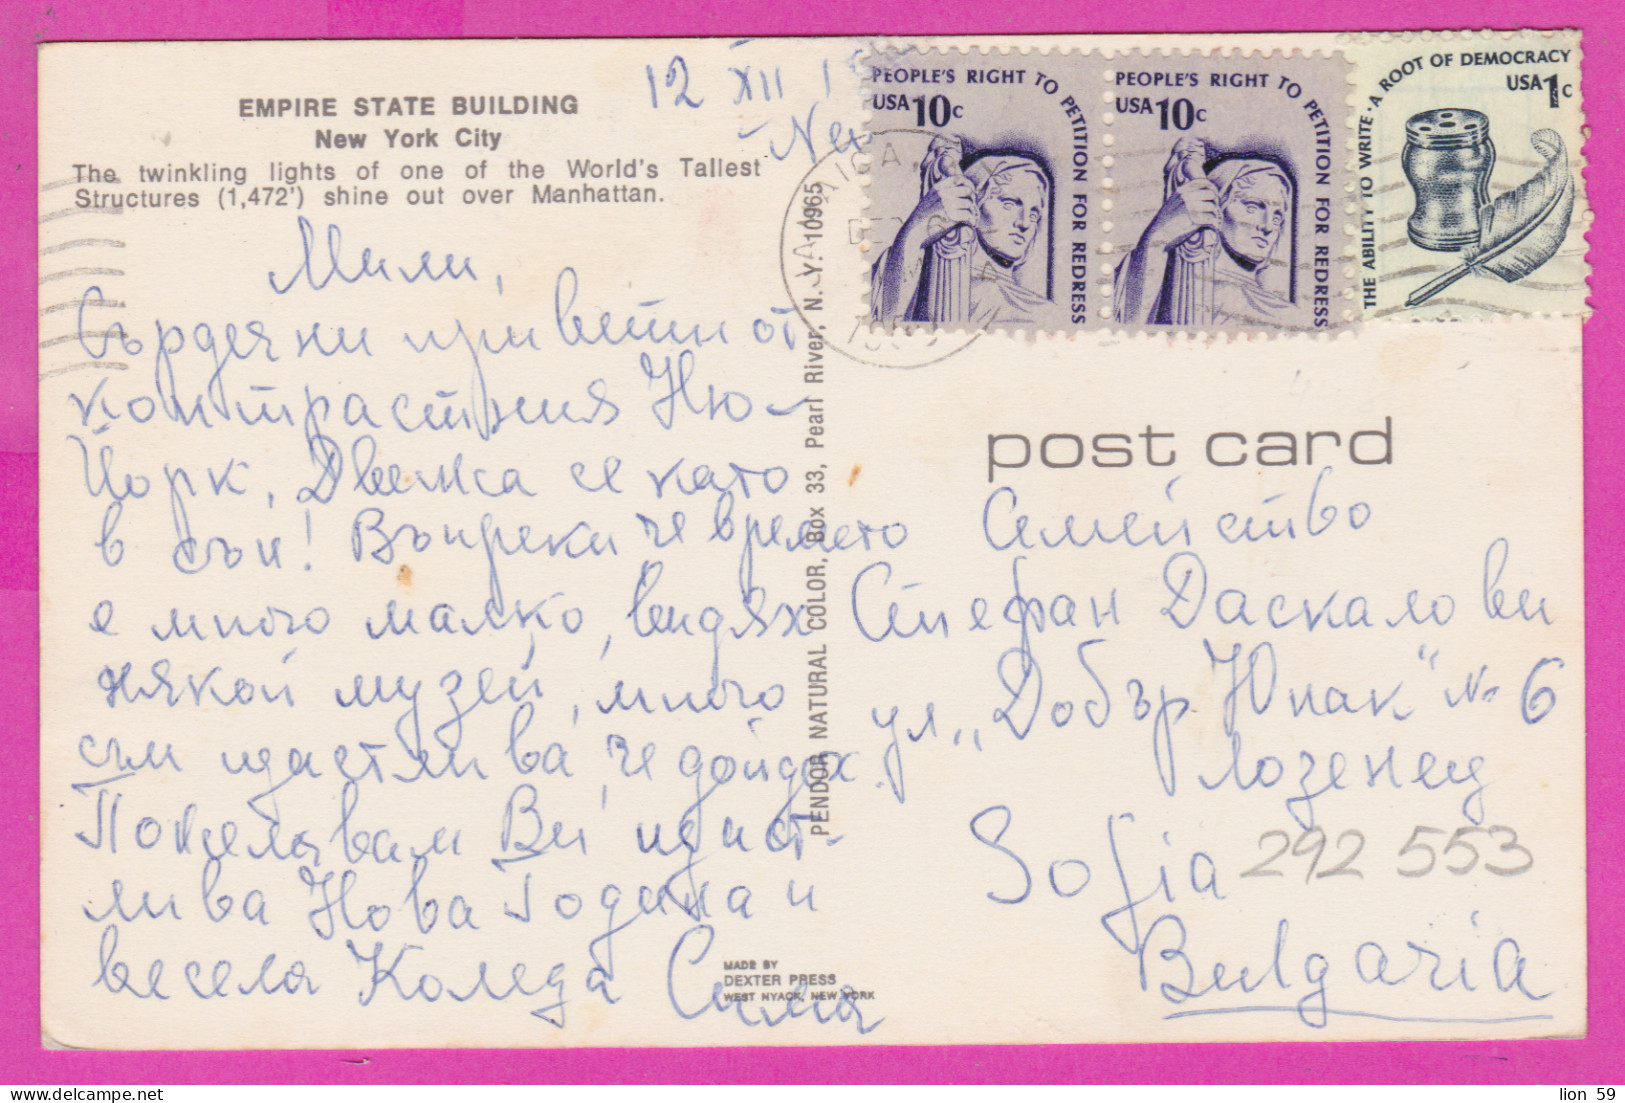 EMPIRE STATE BUILDING
New York City
The twinkling lights of one of the World's Tallest
Structures (1,472') shine out over Manhattan.
12 XII
Мили,
Сърдечни привети от
контрастния Ню-
Йорк. Движа се като
в сън! Въпреки че времето
е много малко, видях
някой музей, много
съм щастлива, че дойдох.
Пожелавам Ви щаст-
лива Нова Година и
весела Коледа
PENDOR NATURAL COLOR, Box 33, Pearl River, N. Y. 10965
MADE BY
DEXTER PRESS
WEST NYACK, NEW YORK
PEOPLE'S RIGHT TO PETITION FOR REDRESS
USA 10c
PEOPLE'S RIGHT TO PETITION FOR REDRESS
USA 10c
THE ABILITY TO WRITE · A ROOT OF DEMOCRACY
USA 1c
post card
Семейство
Стефан Даскалови
ул. „Добър Юнак" № 6
Лозенец
Sofia
292 553
Bulgaria
lion 59